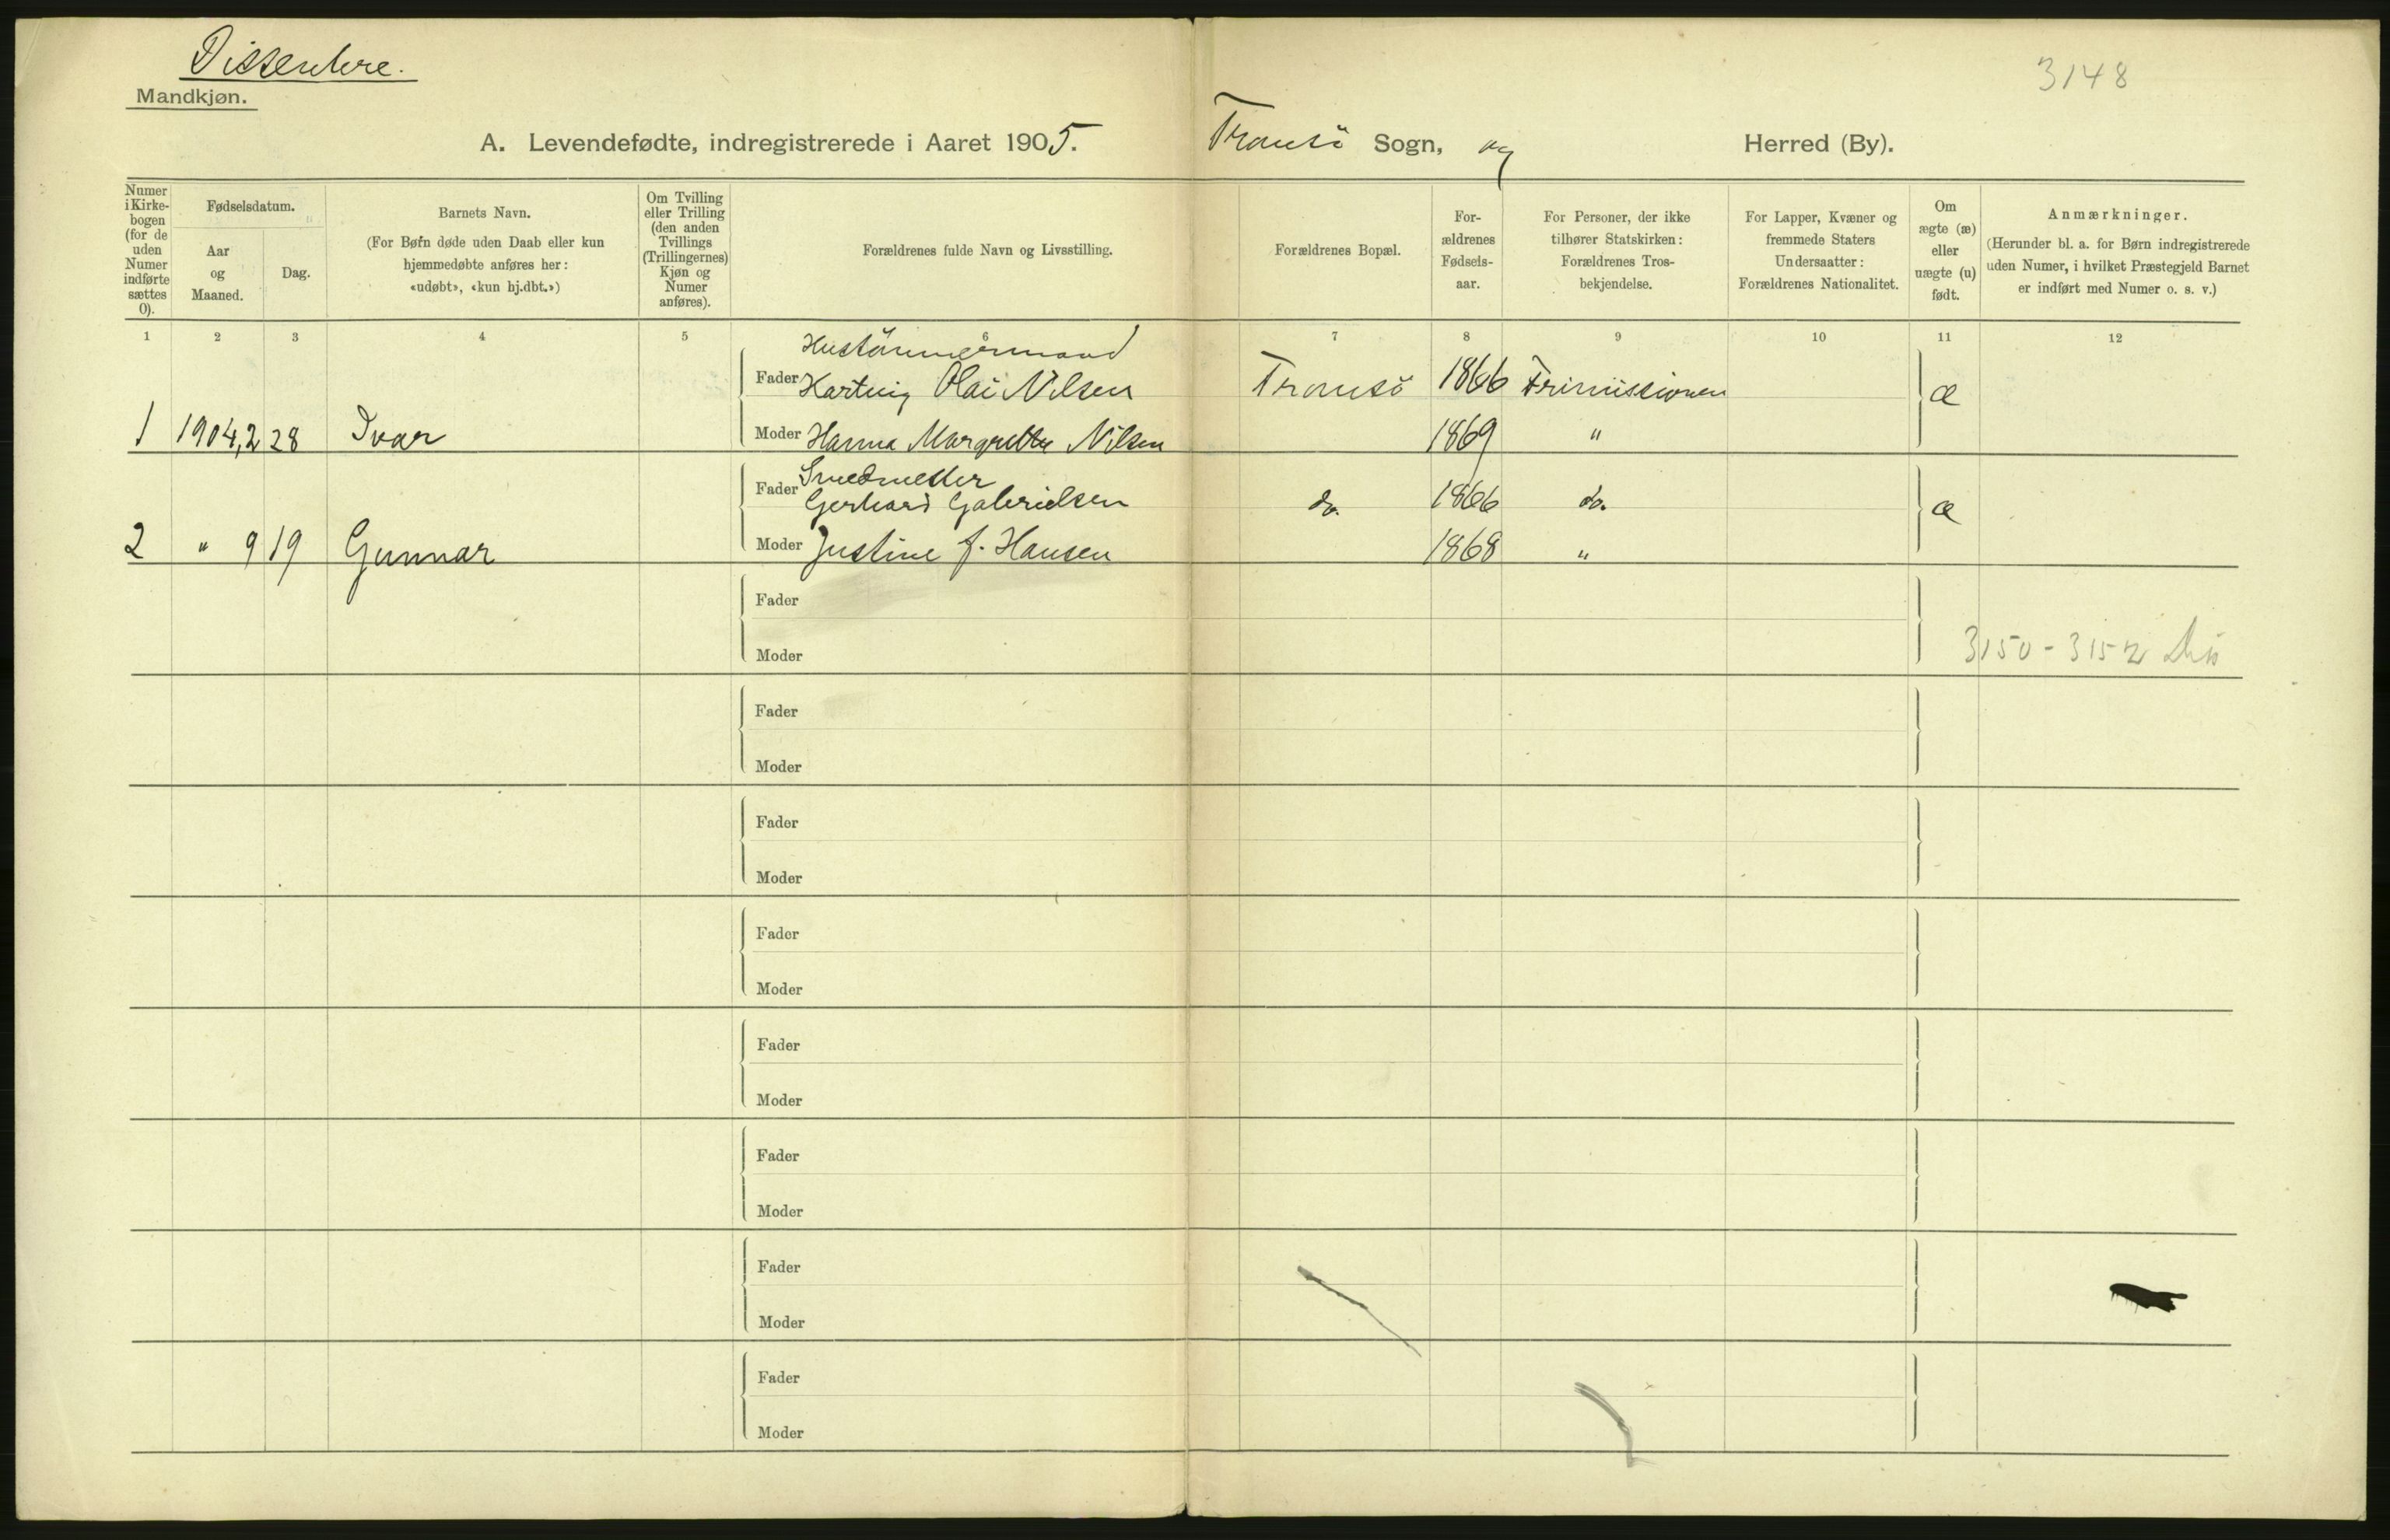 Dissentere.
Mandkjøn.
3148
A. Levendefødte, indregistrerede i Aaret 1905. Tromsö Sogn, og Herred (By).
Numer i Kirkebogen (for de uden Numer indførte sættes 0).
Fødselsdatum.
Aar og Maaned.
Dag.
Barnets Navn.
(For Børn døde uden Daab eller kun
hjemmedøbte anføres her:
«udøbt», «kun hj.dbt.»)
Om Tvilling
eller Trilling
(den anden
Tvillings
(Trillingernes)
Kjøn og
Numer
anføres).
Forældrenes fulde Navn og Livsstilling.
Forældrenes Bopæl.
For-
ældrenes
Fødsels-
aar.
For Personer, der ikke
tilhører Statskirken:
Forældrenes Tros-
bekjendelse.
For Lapper, Kvæner og
fremmede Staters
Undersaatter:
Forældrenes Nationalitet.
Om
ægte (æ)
eller
uægte (u)
født.
Anmærkninger.
(Herunder bl. a. for Børn indregistrerede
uden Numer, i hvilket Præstegjeld Barnet
er indført med Numer o. s. v.)
1 2 3 4 5 6 7 8 9 10 11 12
Hustömmermand
Fader Hartvig Olai Nilsen Tromsö 1866 Frimissionen æ
1 1904,2 28 Ivar Moder Hanna Margrethe Nilsen 1869 "
Smedmester
Fader Gerhard Gabrielsen do. 1866 do. æ
2 " 9 19 Gunnar Moder Justine J. Hansen 1868 "
Fader
Moder 3150 - 3152
Fader
Moder
Fader
Moder
Fader
Moder
Fader
Moder
Fader
Moder
Fader
Moder
Fader
Moder